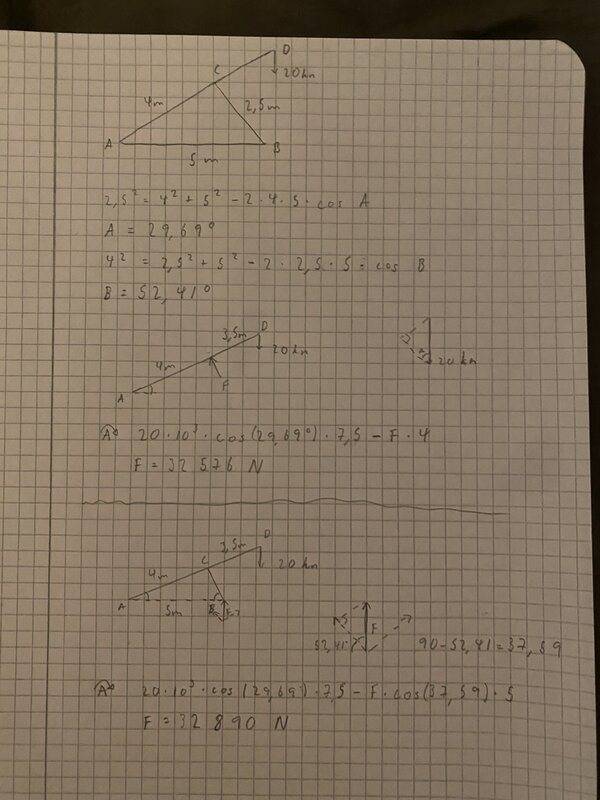 D
C
20 kn
4m
2,5m
A
B
5 m
2,5² = 4² + 5² - 2 · 4 · 5 · cos A
A = 29,69°
4² = 2,5² + 5² - 2 · 2,5 · 5 · cos B
B = 52,41°
3,5m D
20 kn
4m
20 kn
A
F
A 20·10³ · cos(29,69°) · 7,5 - F · 4
F = 32 576 N
D
3,5m
C
20 kn
4m
A
5m
B
F
52,41°
90-52,41=37,59
A 20·10³ · cos(29,69) · 7,5 - F · cos(37,59) · 5
F = 32 890 N